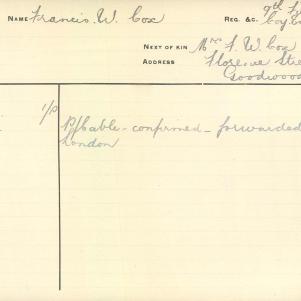 NAME Francis. W. Cox
REG. &C. 9th
NEXT OF KIN Mrs F. W. Cox
ADDRESS Florence
Goodwood
1/P
Cable - confirmed - forwarded
London